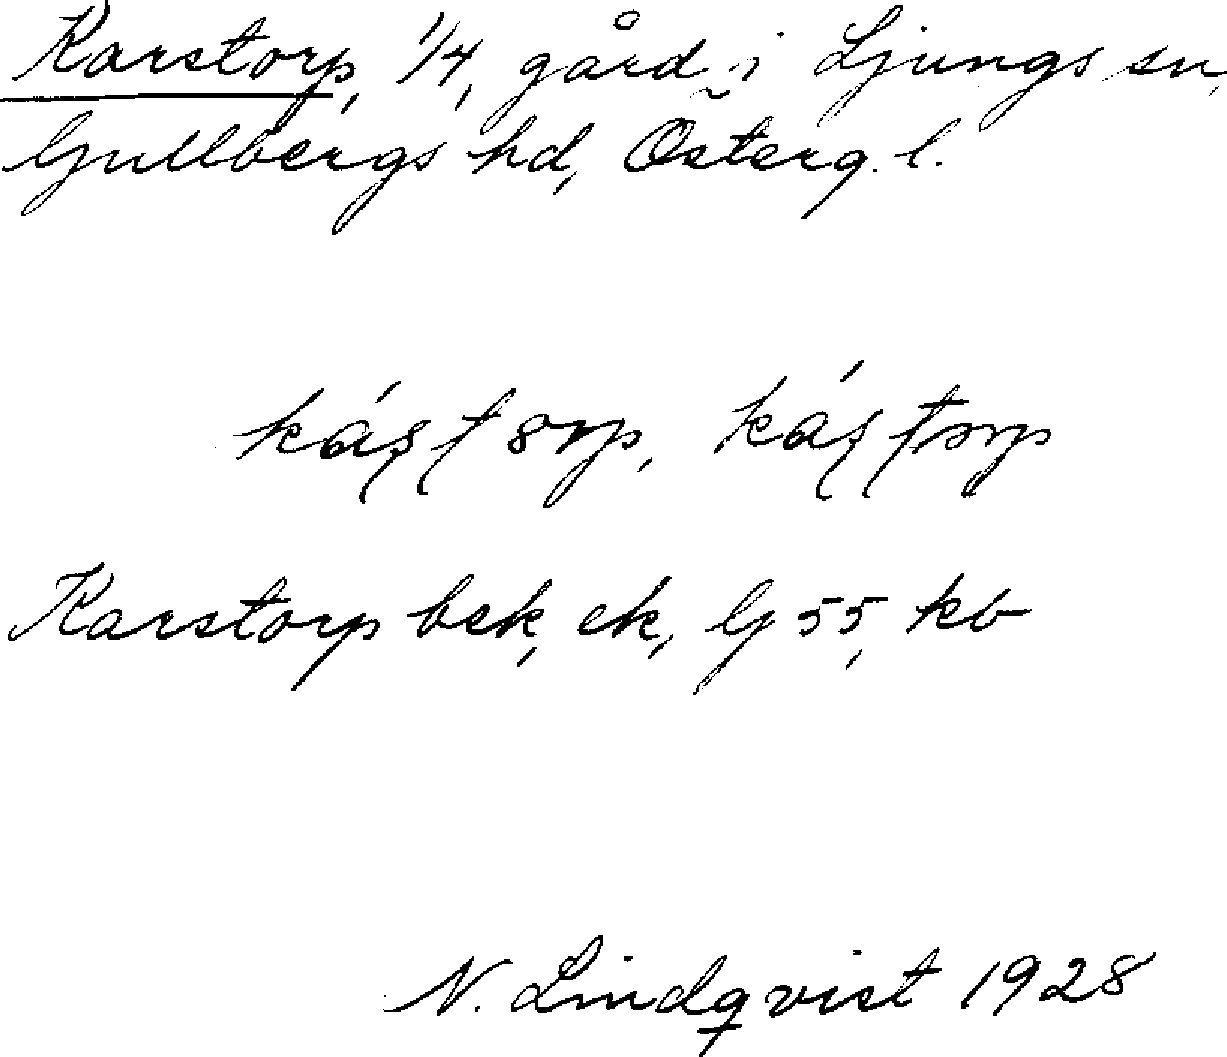 Karstorp, 1/4, gård i Ljungs sn,
Gullbergs hd, Österg. l.
Karstorp bek, ek, G 55, kb
N. Lindqvist 1928